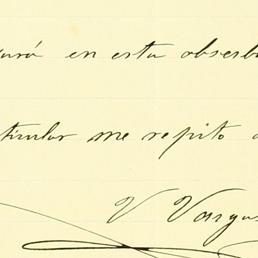 en esta obserb
ticular me repito
V Vargas